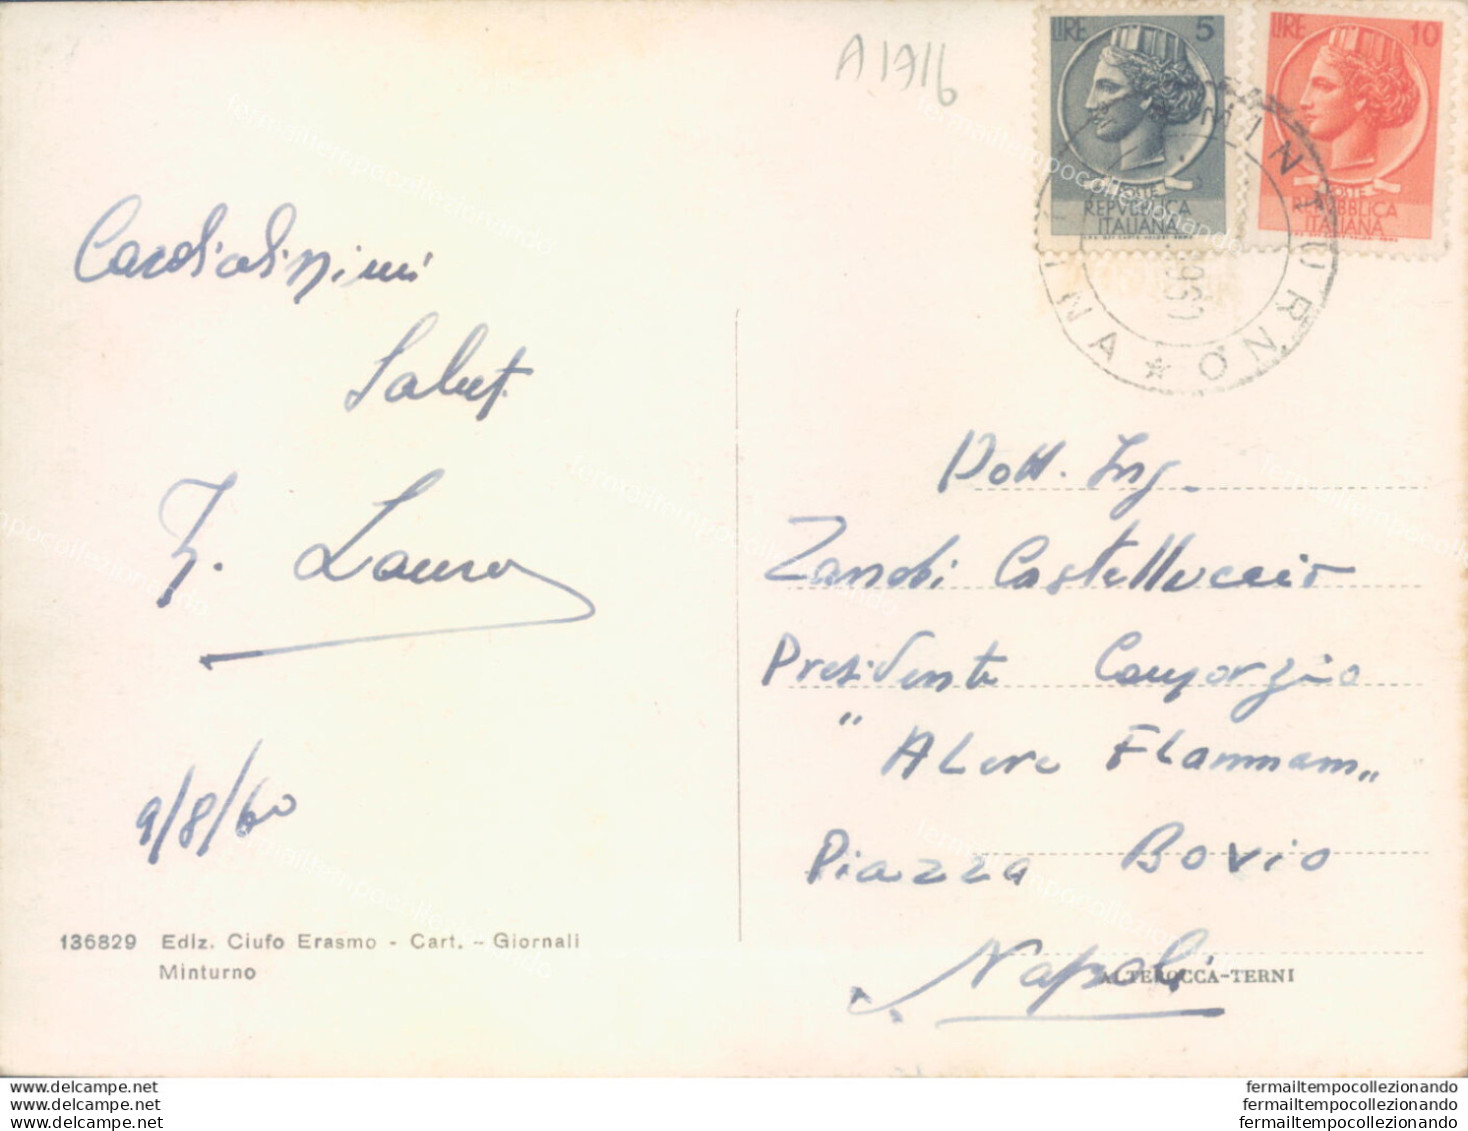 A1716
LIRE 5
POSTE
REPVBBLICA
ITALIANA
LIRE 10
POSTE
REPVBBLICA
ITALIANA
MINTURNO
Cardialissimi
Saluti
Lauro
9/8/60
136829 Ediz. Ciufo Erasmo - Cart. - Giornali
Minturno
Dott. Ing.
Zanobi Castelluccio
Presidente Consorzio
"Alere Flammam"
Piazza Bovio
Napoli
ALTEROCCA-TERNI
fermailtempocollezionando
www.delcampe.net
www.delcampe.net
www.delcampe.net
fermailtempocollezionando
fermailtempocollezionando
fermailtempocollezionando